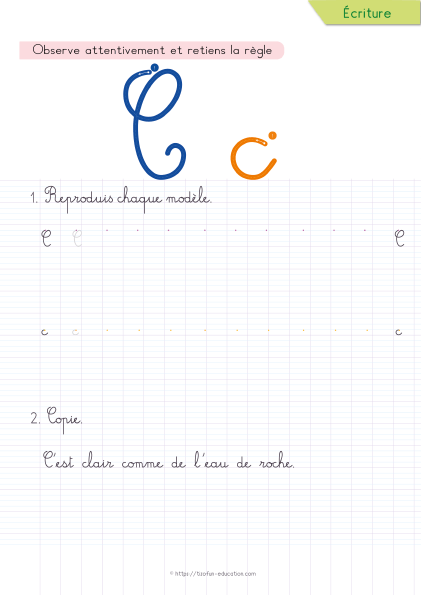 Écriture
Observe attentivement et retiens la règle
C c
1. Reproduis chaque modèle.
C C C
c c c
2. Copie.
C'est clair comme de l'eau de roche.
© https://tisofun-education.com